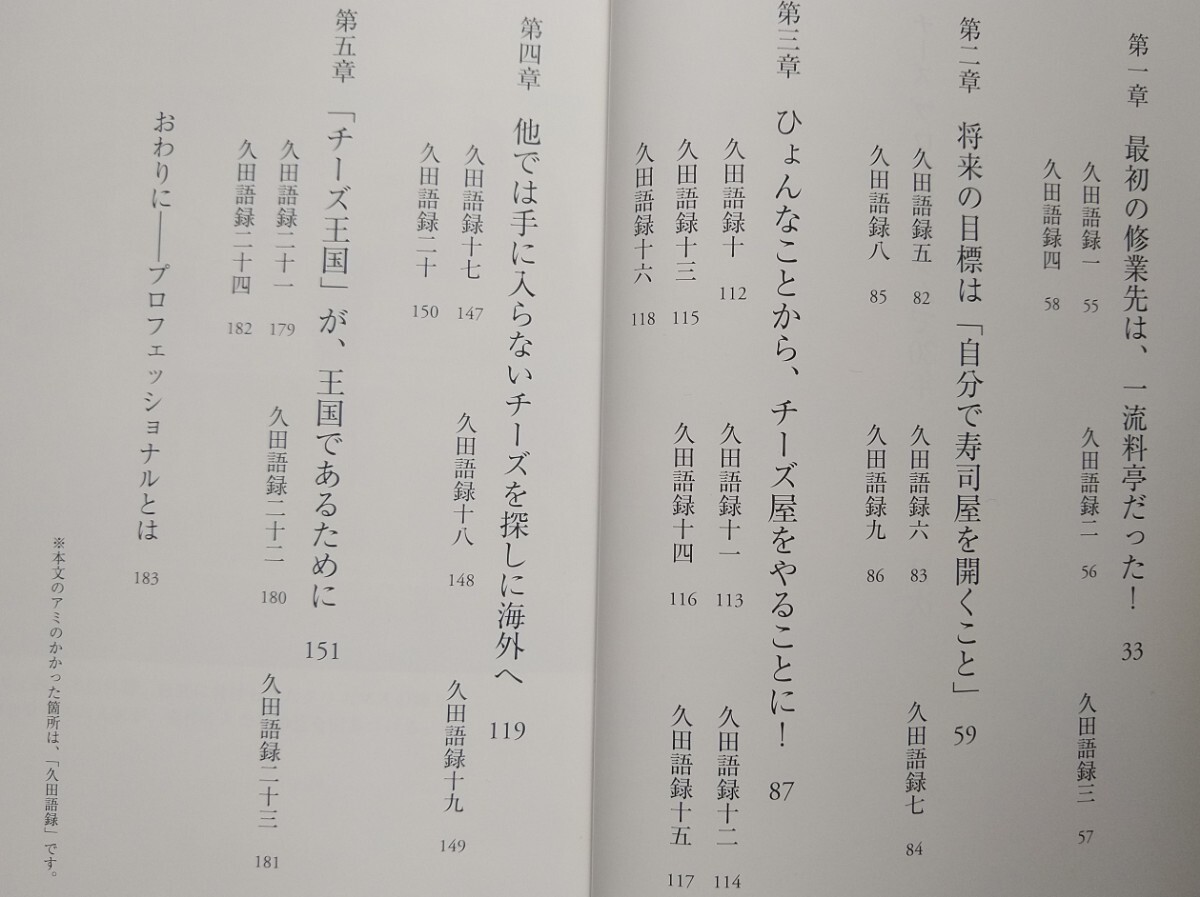 第一章 最初の修業先は、一流料亭だった! 33
久田語録一 55 久田語録二 56 久田語録三 57
久田語録四 58
第二章 将来の目標は「自分で寿司屋を開くこと」 59
久田語録五 82 久田語録六 83 久田語録七 84
久田語録八 85 久田語録九 86
第三章 ひょんなことから、チーズ屋をやることに! 87
久田語録十 112 久田語録十一 113 久田語録十二 114
久田語録十三 115 久田語録十四 116 久田語録十五 117
久田語録十六 118
第四章 他では手に入らないチーズを探しに海外へ 119
久田語録十七 147 久田語録十八 148 久田語録十九 149
久田語録二十 150
第五章 「チーズ王国」が、王国であるために 151
久田語録二十一 179 久田語録二十二 180 久田語録二十三 181
久田語録二十四 182
おわりに――プロフェッショナルとは 183
※本文のアミのかかった箇所は、「久田語録」です。